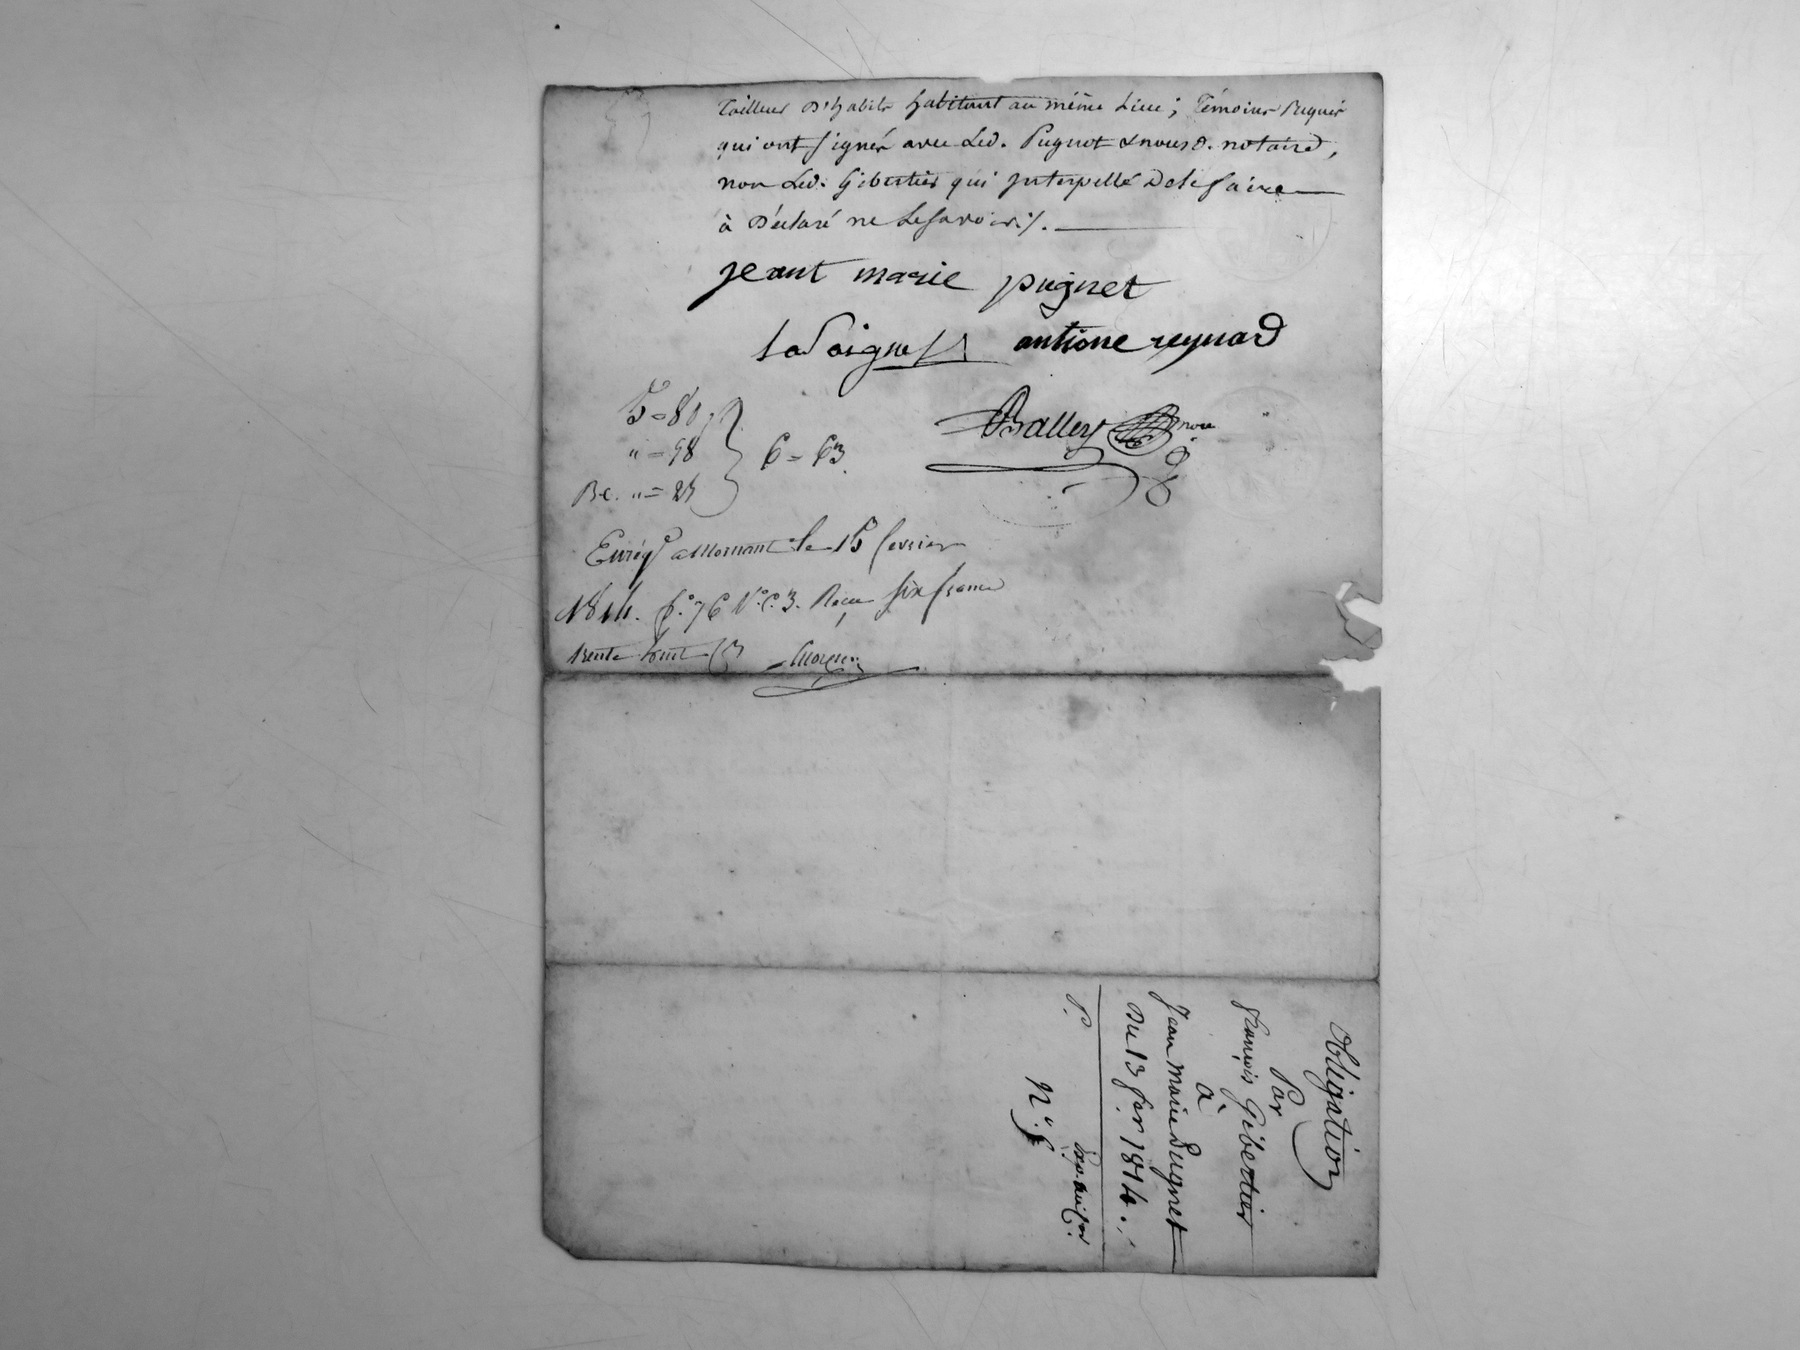 Tailleur D'habits habitant au même Lieu ; Témoins Requis
qui ont signés avec Led. Pugnet & nous d. notaire,
non Led. Gibertier qui Interpellé De le faire
à Déclaré ne Le savoir ./.
jeant marie pugnet
antione reynard
5 = 80
" = 58
Balley nre
6 = 63
" = 25
Enrégé a Mornant le 15 fevrier
1814. fo. 76 Vo. C. 3. Reçu six francs
trente huit
Obligation
Par
françois Gibertier
à
Jean Marie Pugnet
Du 13 fer 1814 ./
P.
No.